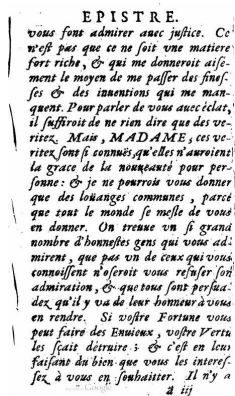 EPISTRE.
vous font admirer auec justice. Ce
n'est pas que ce ne soit vne matiere
fort riche, & qui me donneroit aisé-
ment le moyen de me passer des fines-
ses & des inuentions qui me man-
quent. Pour parler de vous auec éclat,
il suffiroit de ne rien dire que des ve-
ritez. Mais, MADAME, ces ve-
ritez sont si connuës, qu'elles n'auroient
la grace de la nouueauté pour per-
sonne: & je ne pourrois vous donner
que des loüanges communes, parce
que tout le monde se mesle de vous
en donner. On treuue vn si grand
nombre d'honnestes gens qui vous ad-
mirent, que pas vn de ceux qui vous
connoissent n'oseroit vous refuser son
admiration, & que tous sont persua-
dez qu'il y va de leur honneur à vous
en rendre. Si vostre Fortune vous
peut faire des Enuieux, vostre Vertu
les sçait détruire; & c'est en leur
faisant du bien que vous les interes-
sez à vous en souhaitter. Il n'y a
ã iij
Google